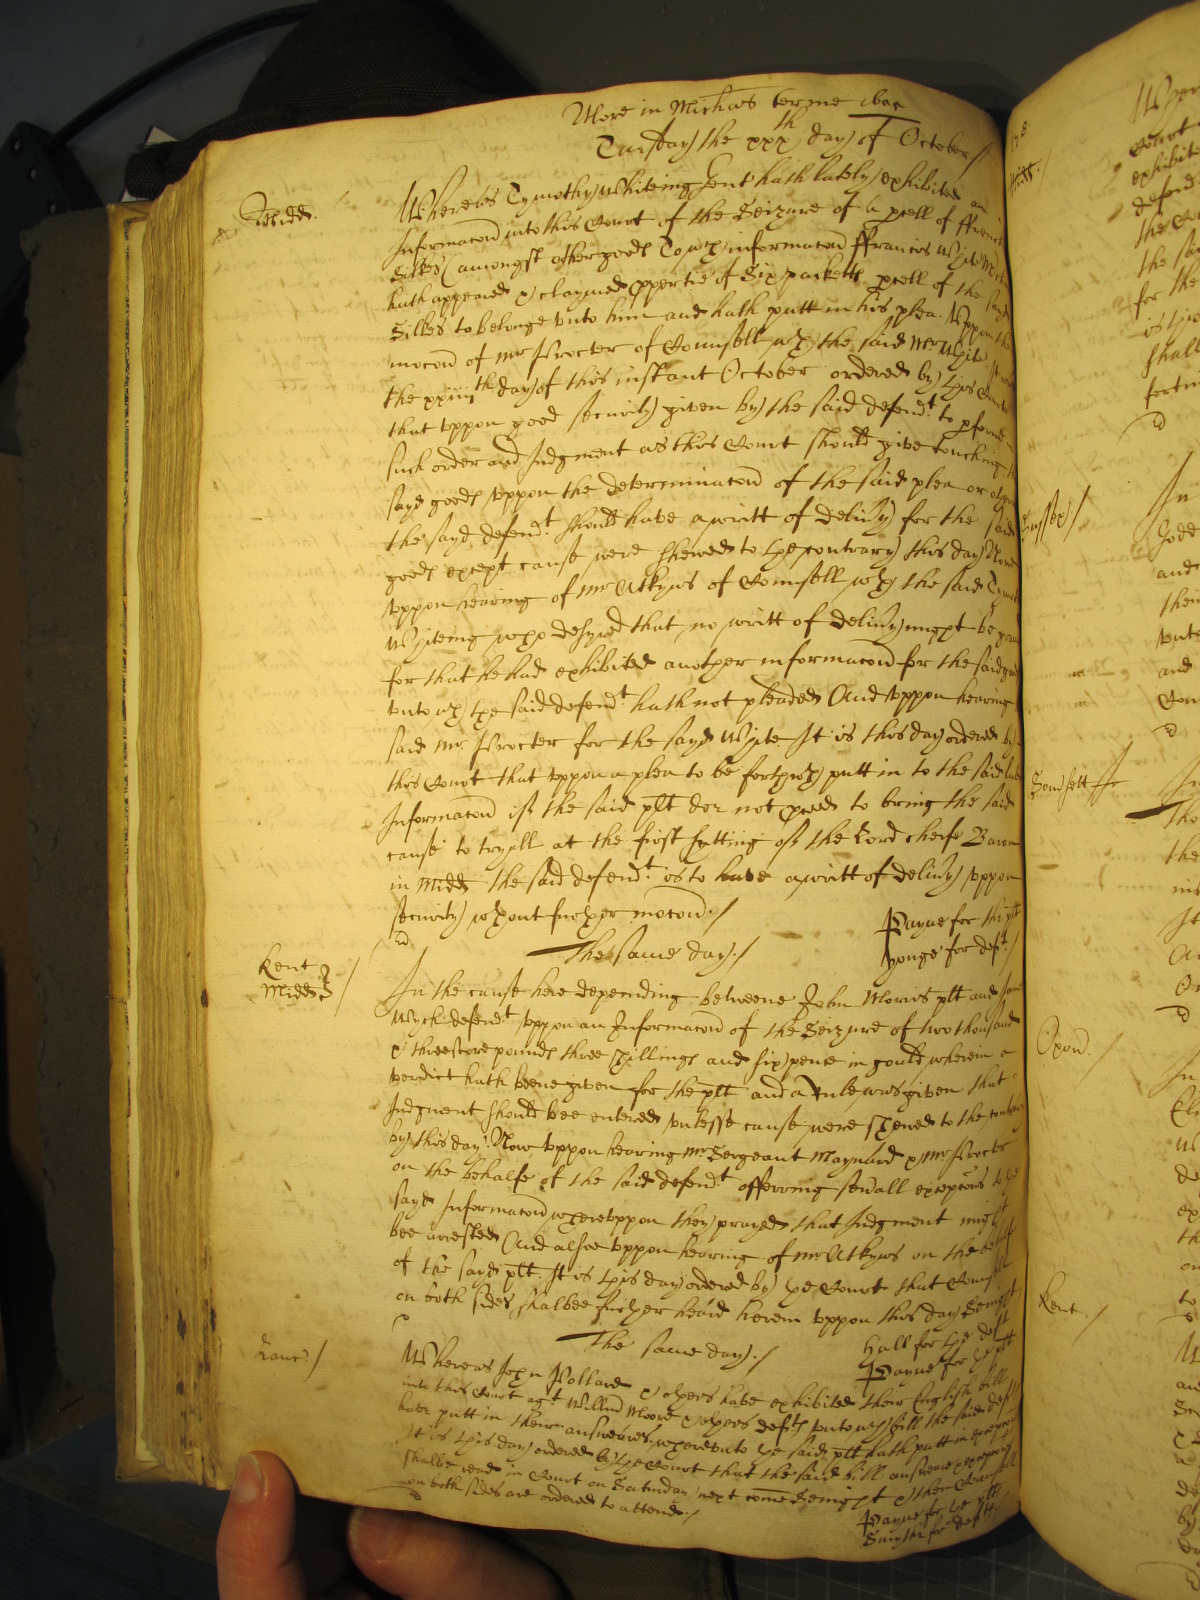 More in Michas terme
Tuesday the xxxth day of October
Midds.
Whereas Tymothy Whiteing gent hath lately exhibited an
Informacon into this Court of the Seizure of a pcell of ffrench
Silkes (amongst other goods) To wch informacon ffrancis White
hath appeared & claymed ppertie of Six packetts pcell of the sayd
Silkes to belonge unto him and hath putt in his plea. Uppon the
mocon of mr Procter of Counsell wth the said Mr White It was
the xxiiijth day of this instant October ordered by this Court
that uppon good security given by the said defendt to pforme
such order and Judgment as this Court should give touching the
sayd goods uppon the determinacon of the said plea or otherwise
the sayd defendt should have a writt of delivy for the said
goods except cause were shewed to the contrary this day Now
uppon hearing of mr Atkyns of Counsell wth the said Tymothy
Whiteing who desyred that no writt of delivy might be
for that he had exhibited another informacon for the said
unto wch the said defendt hath not pleaded And uppon hearing
said mr Procter for the sayd White It is this day ordered by
this Court that uppon a plea to be forthwth putt in to the said
Informacon if the said plt doe not pceed to bring the said
cause to tryall at the first sitting of the Lord cheife Baron
in Midds the said defendt is to have a writt of delivy uppon
security wthout further mocon./
Payne for the plt
Yonge for deft./
The same day./
Kent
Midds
In the cause here depending betweene John Morris plt and
Wyck defendt uppon an Informacon of the Seizure of two thousand
& threescore pounds three shillings and six pence in gould wherein a
verdict hath beene given for the plt and a rule was given that
Judgment should bee entered unlesse cause were shewed to the contrary
by this day. Now uppon hearing mr Sergeant Maynard & mr Procter
on the behalfe of the said defendt offerring sevall excepcons to the
sayd Informacon whereuppon they prayed that Judgment might
bee arrested And alsoe uppon hearing of mr Atkyns on the behalfe
of the sayd plt. It is this day ordered by the Court that Counsell
on both sides shalbee further heard herein uppon this day Senight
Hall for the deft
Payne for the plt
The same day./
Lanc./
Whereas John Pollard & others have exhibited their English bill
into this Court agt Willm Moore & others defts unto wch bill the said defts
have putt in their answeares, whereunto the said plt hath putt in excepcons
It is this day ordered by the Court that the said bill answere & excepcons
shalbe read in Court on Saturday next come Senight & then Counsell
on both sides are ordered to attend./
Payne for the plts
for defts.
Sussex/
Oxon./
Kent./